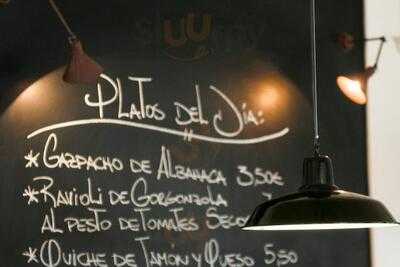 Platos del Día:
* Gazpacho de Albahaca 3,50€
* Ravioli de Gorgonzola
al pesto de Tomates Secos
* Quiche de Jamon y Queso 5,50